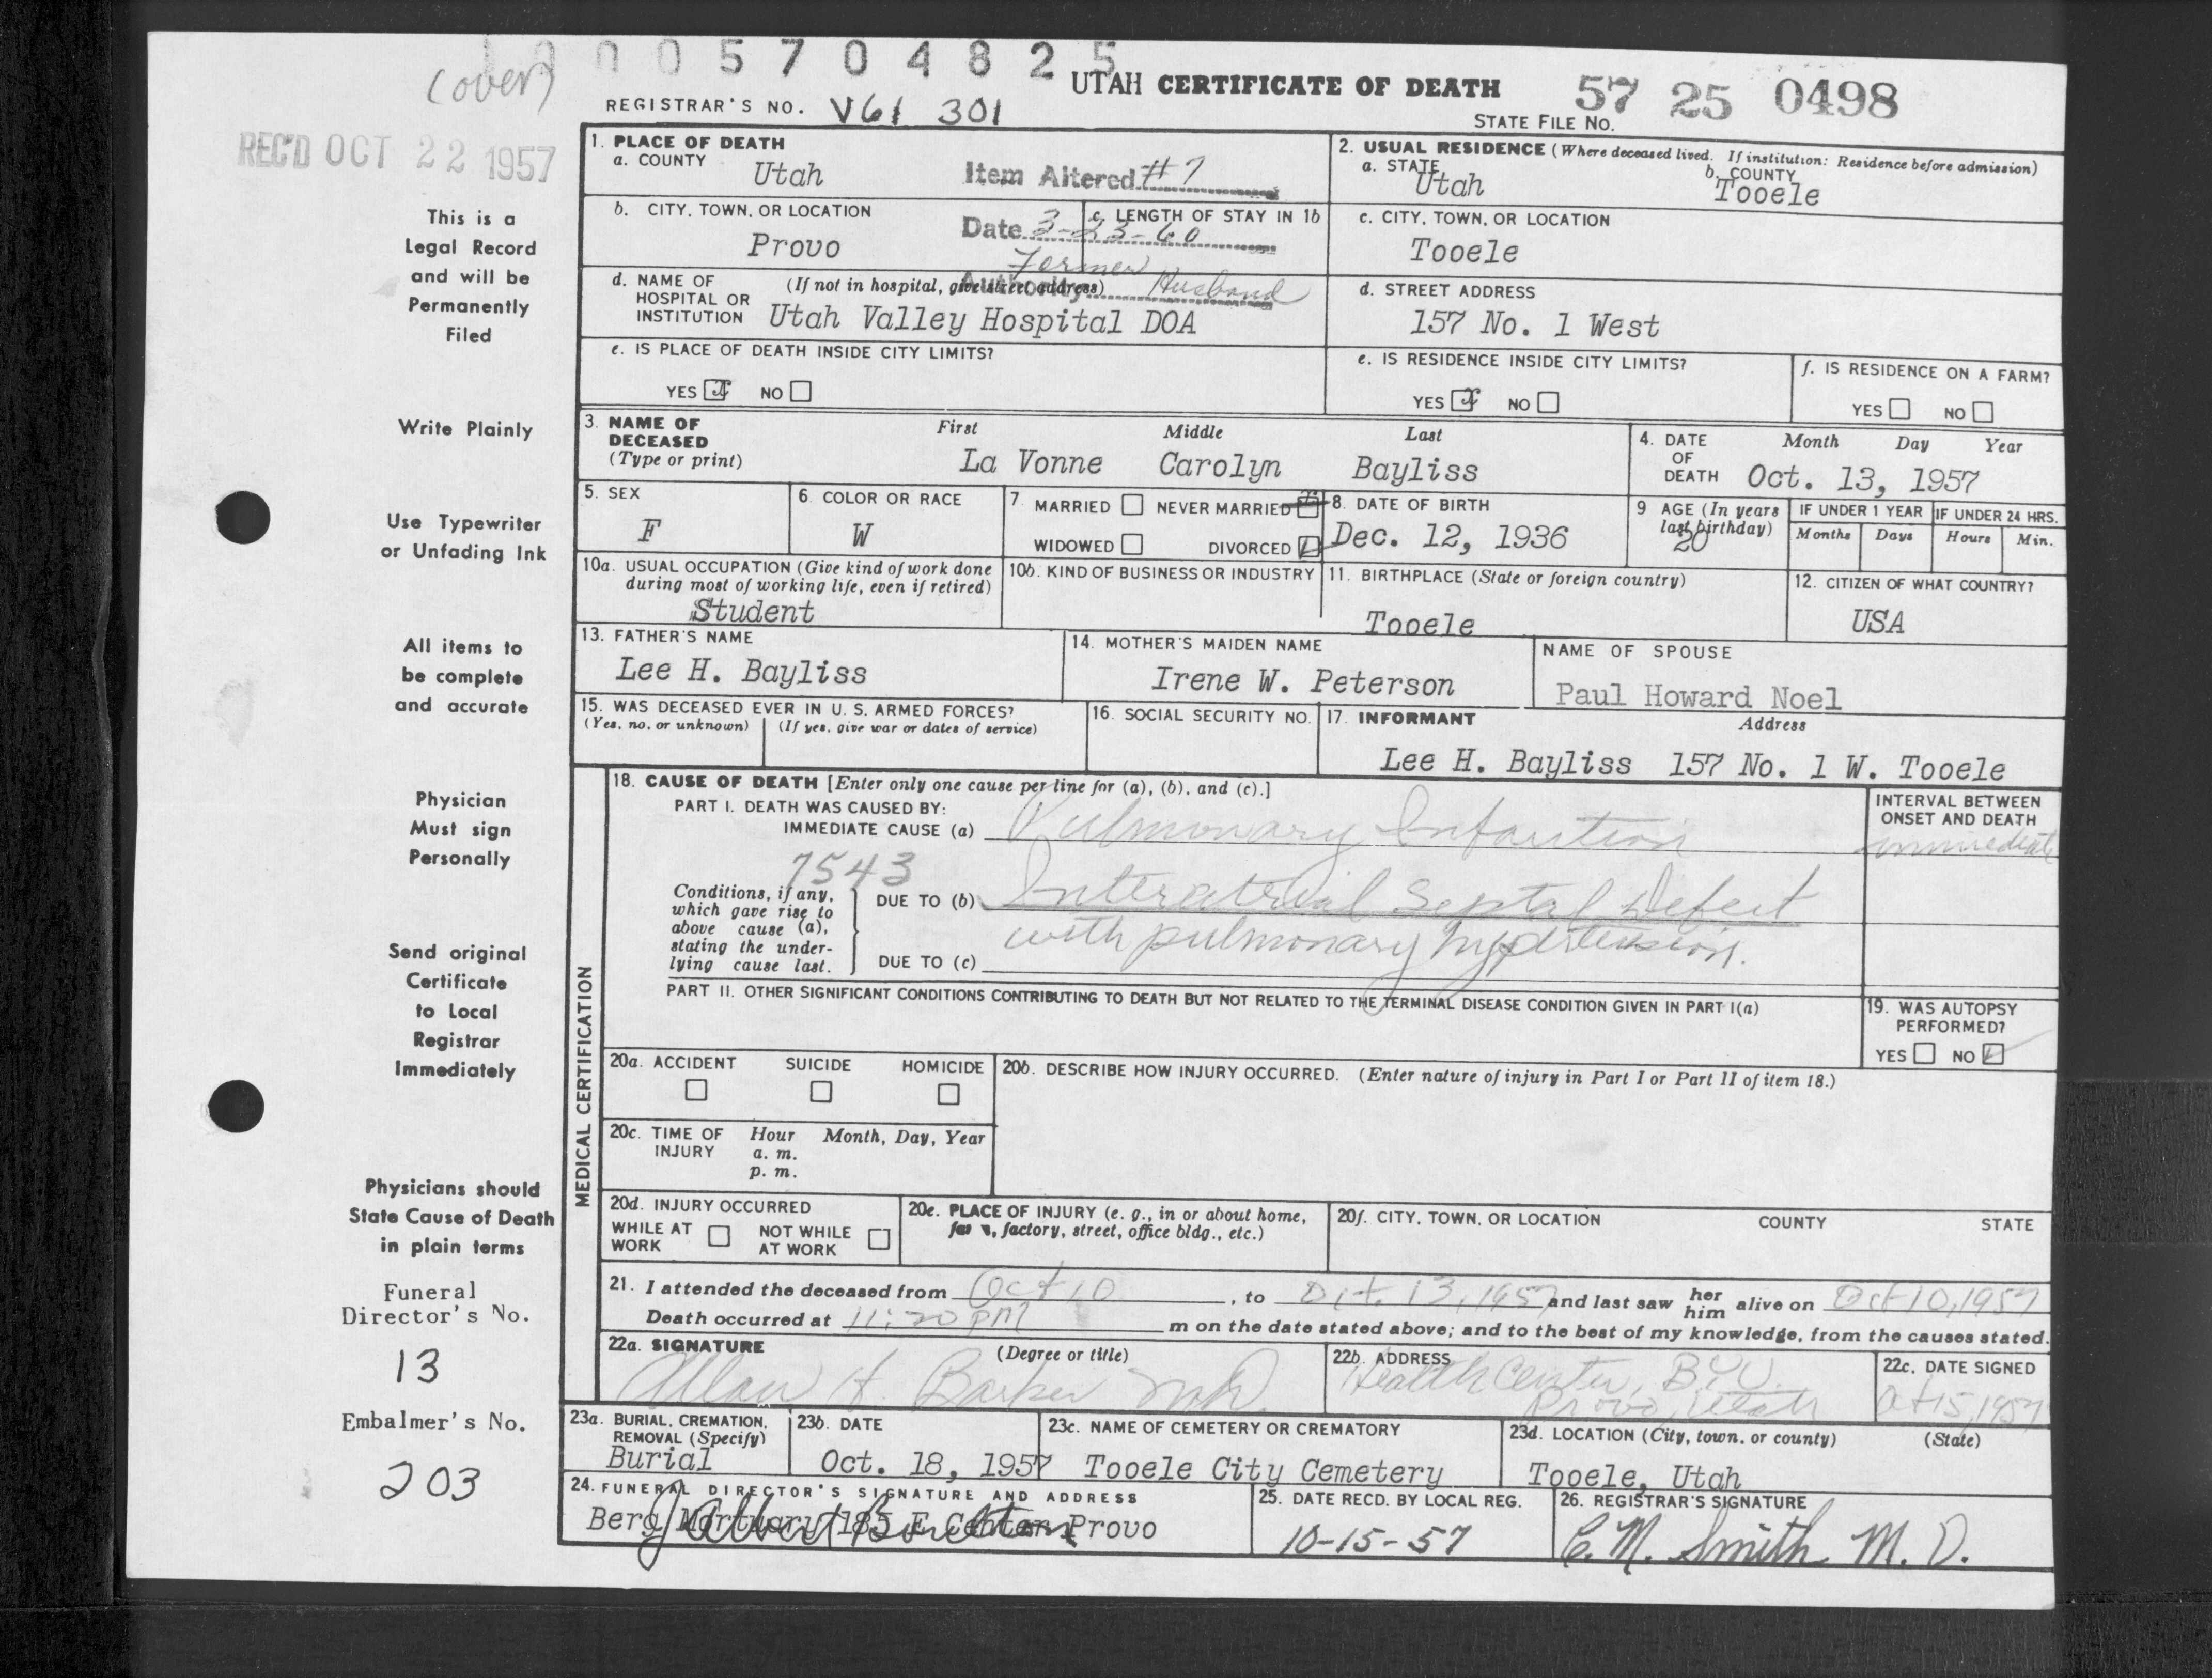 (over)
0005704825
UTAH CERTIFICATE OF DEATH
57 25 0498
REGISTRAR'S NO. V61 301
STATE FILE NO.
REC'D OCT 22 1957
This is a
Legal Record
and will be
Permanently
Filed
Write Plainly
Use Typewriter
or Unfading Ink
All items to
be complete
and accurate
Physician
Must sign
Personally
Send original
Certificate
to Local
Registrar
Immediately
Physicians should
State Cause of Death
in plain terms
Funeral
Director's No.
13
Embalmer's No.
203
1. PLACE OF DEATH
a. COUNTY
Utah
Item Altered #7
Date 3-23-60
Authority Former Husband
2. USUAL RESIDENCE (Where deceased lived. If institution: Residence before admission)
a. STATE
Utah
b. COUNTY
Tooele
b. CITY, TOWN, OR LOCATION
Provo
c. LENGTH OF STAY IN 1b
c. CITY, TOWN, OR LOCATION
Tooele
d. NAME OF HOSPITAL OR INSTITUTION
(If not in hospital, give street address)
Utah Valley Hospital DOA
d. STREET ADDRESS
157 No. 1 West
e. IS PLACE OF DEATH INSIDE CITY LIMITS?
YES X NO
e. IS RESIDENCE INSIDE CITY LIMITS?
YES X NO
f. IS RESIDENCE ON A FARM?
YES NO
3. NAME OF DECEASED (Type or print)
First Middle Last
La Vonne Carolyn Bayliss
4. DATE OF DEATH
Month Day Year
Oct. 13, 1957
5. SEX
F
6. COLOR OR RACE
W
7 MARRIED NEVER MARRIED
WIDOWED DIVORCED
8. DATE OF BIRTH
Dec. 12, 1936
9 AGE (In years last birthday)
20
IF UNDER 1 YEAR
Months Days
IF UNDER 24 HRS.
Hours Min.
10a. USUAL OCCUPATION (Give kind of work done during most of working life, even if retired)
Student
10b. KIND OF BUSINESS OR INDUSTRY
11. BIRTHPLACE (State or foreign country)
Tooele
12. CITIZEN OF WHAT COUNTRY?
USA
13. FATHER'S NAME
Lee H. Bayliss
14. MOTHER'S MAIDEN NAME
Irene W. Peterson
NAME OF SPOUSE
Paul Howard Noel
15. WAS DECEASED EVER IN U. S. ARMED FORCES?
(Yes, no, or unknown) (If yes, give war or dates of service)
16. SOCIAL SECURITY NO.
17. INFORMANT Address
Lee H. Bayliss 157 No. 1 W. Tooele
MEDICAL CERTIFICATION
18. CAUSE OF DEATH [Enter only one cause per line for (a), (b), and (c).]
PART I. DEATH WAS CAUSED BY:
IMMEDIATE CAUSE (a) Pulmonary Infarction
INTERVAL BETWEEN ONSET AND DEATH
immediate
7543
Conditions, if any, which gave rise to above cause (a), stating the underlying cause last.
DUE TO (b) Interatrial Septal Defect
with pulmonary hypertension.
DUE TO (c)
PART II. OTHER SIGNIFICANT CONDITIONS CONTRIBUTING TO DEATH BUT NOT RELATED TO THE TERMINAL DISEASE CONDITION GIVEN IN PART I(a)
19. WAS AUTOPSY PERFORMED?
YES NO
20a. ACCIDENT SUICIDE HOMICIDE
20b. DESCRIBE HOW INJURY OCCURRED. (Enter nature of injury in Part I or Part II of item 18.)
20c. TIME OF INJURY
Hour Month, Day, Year
a. m.
p. m.
20d. INJURY OCCURRED
WHILE AT WORK NOT WHILE AT WORK
20e. PLACE OF INJURY (e. g., in or about home, farm, factory, street, office bldg., etc.)
20f. CITY, TOWN, OR LOCATION COUNTY STATE
21. I attended the deceased from Oct 10, to Oct. 13, 1957 and last saw her him alive on Oct 10, 1957
Death occurred at 11:20 PM m on the date stated above; and to the best of my knowledge, from the causes stated.
22a. SIGNATURE (Degree or title)
Allan H. Barker M.D.
22b. ADDRESS
Health Center, B.Y.U.
Provo, Utah
22c. DATE SIGNED
Oct 15, 1957
23a. BURIAL, CREMATION, REMOVAL (Specify)
Burial
23b. DATE
Oct. 18, 1957
23c. NAME OF CEMETERY OR CREMATORY
Tooele City Cemetery
23d. LOCATION (City, town, or county) (State)
Tooele, Utah
24. FUNERAL DIRECTOR'S SIGNATURE AND ADDRESS
Berg Mortuary 185 E Center Provo
25. DATE RECD. BY LOCAL REG.
10-15-57
26. REGISTRAR'S SIGNATURE
C. M. Smith M. D.